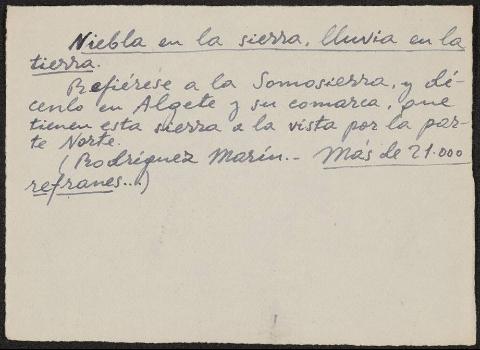 Niebla en la sierra, lluvia en la
tierra.
Refiérese a la Somosierra, y dí-
cenlo en Algete y su comarca, que
tienen esta sierra a la vista por la par-
te Norte.
(Rodríguez Marín.- Más de 21.000
refranes...)